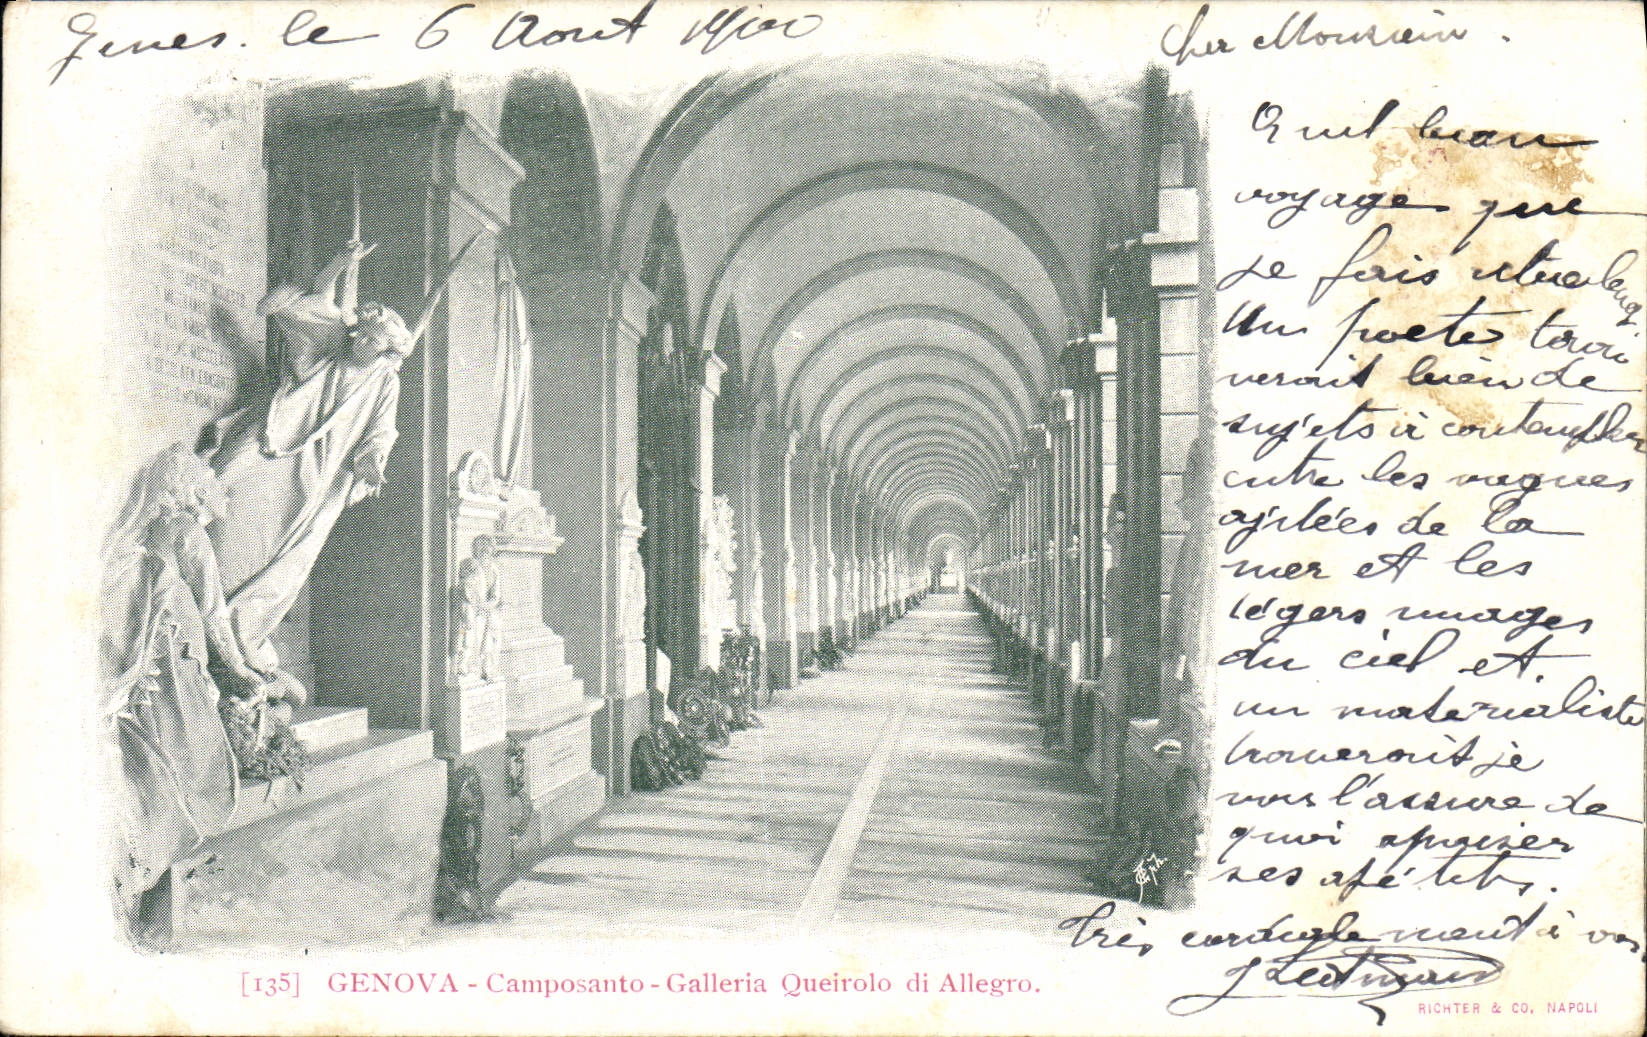 Gênes. le 6 Aout 1900
Cher Monsieur.
Quel beau
voyage que
je fais actuelemt
Un poete trou
verait bien de
sujets à contempler
entre les vagues
agitées de la
mer et les
légers nuages
du ciel et.
un materialiste
trouverait je
vous l'assure de
quoi apaiser
ses apétits.
Très cordialement à vous
[135] GENOVA - Camposanto - Galleria Queirolo di Allegro.
RICHTER & CO, NAPOLI